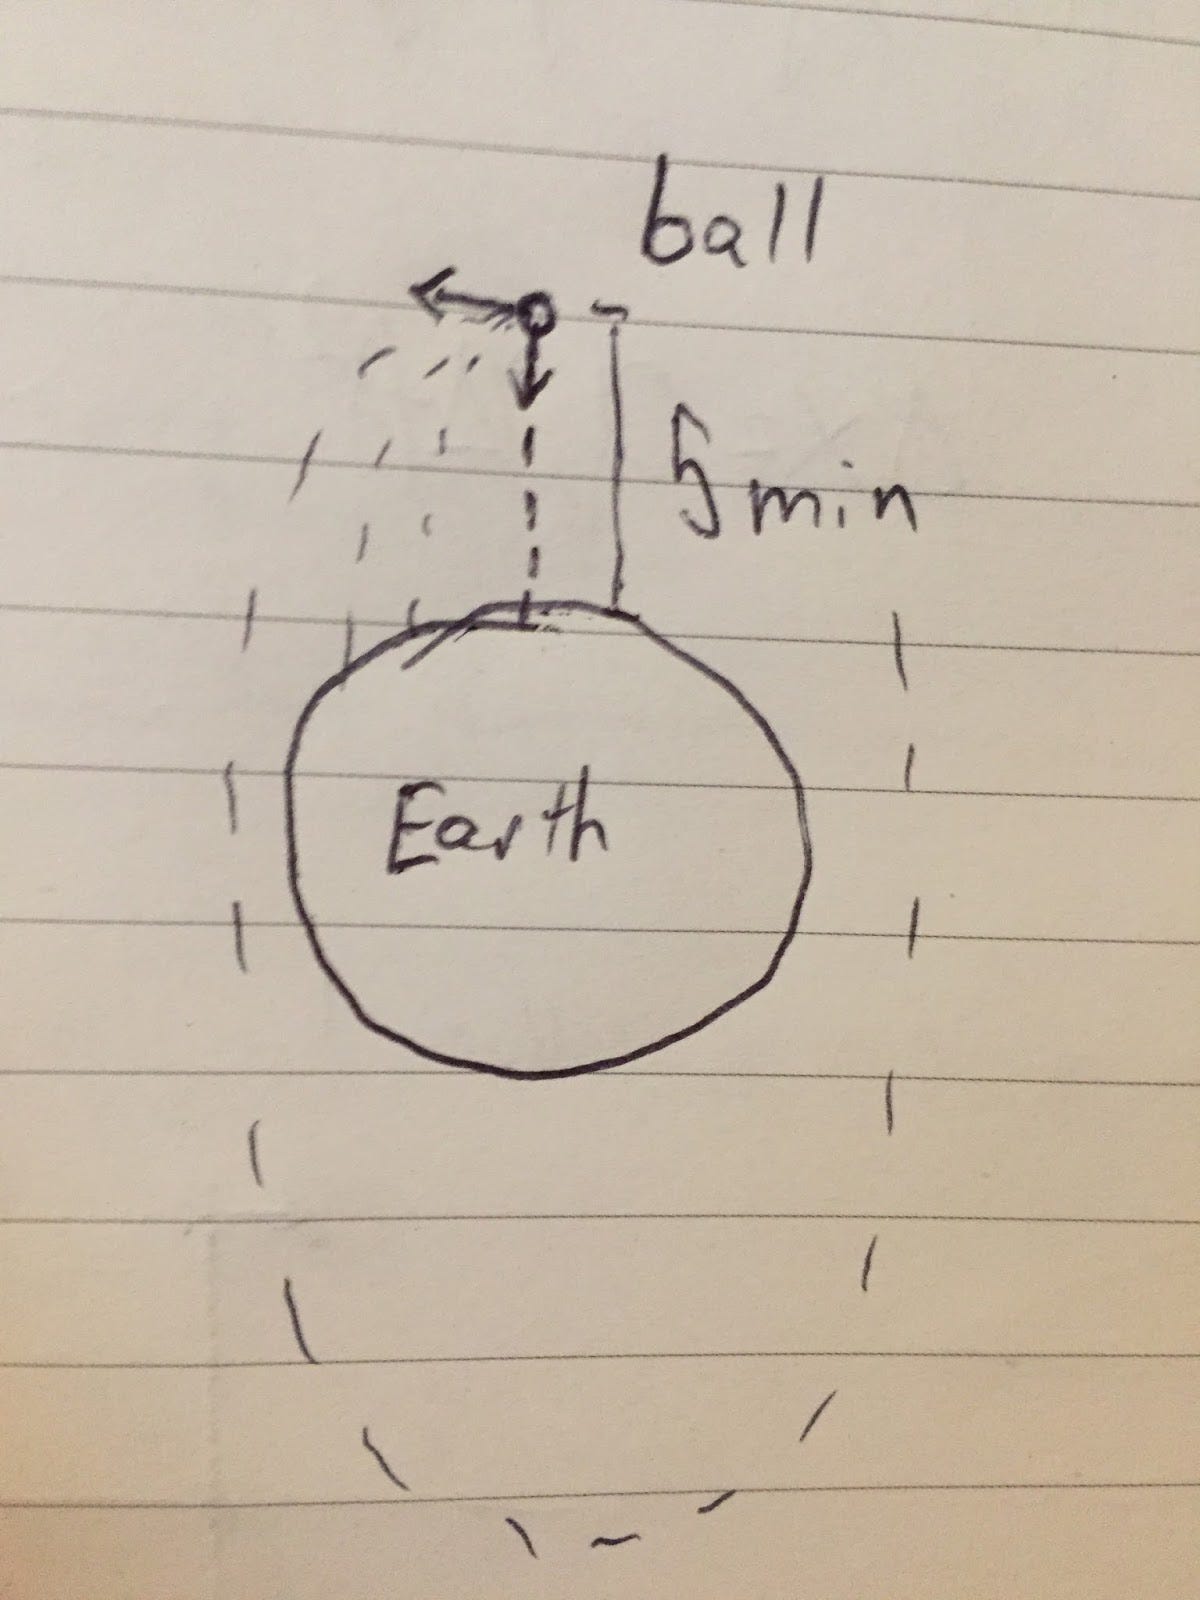 ball
5 min
Earth